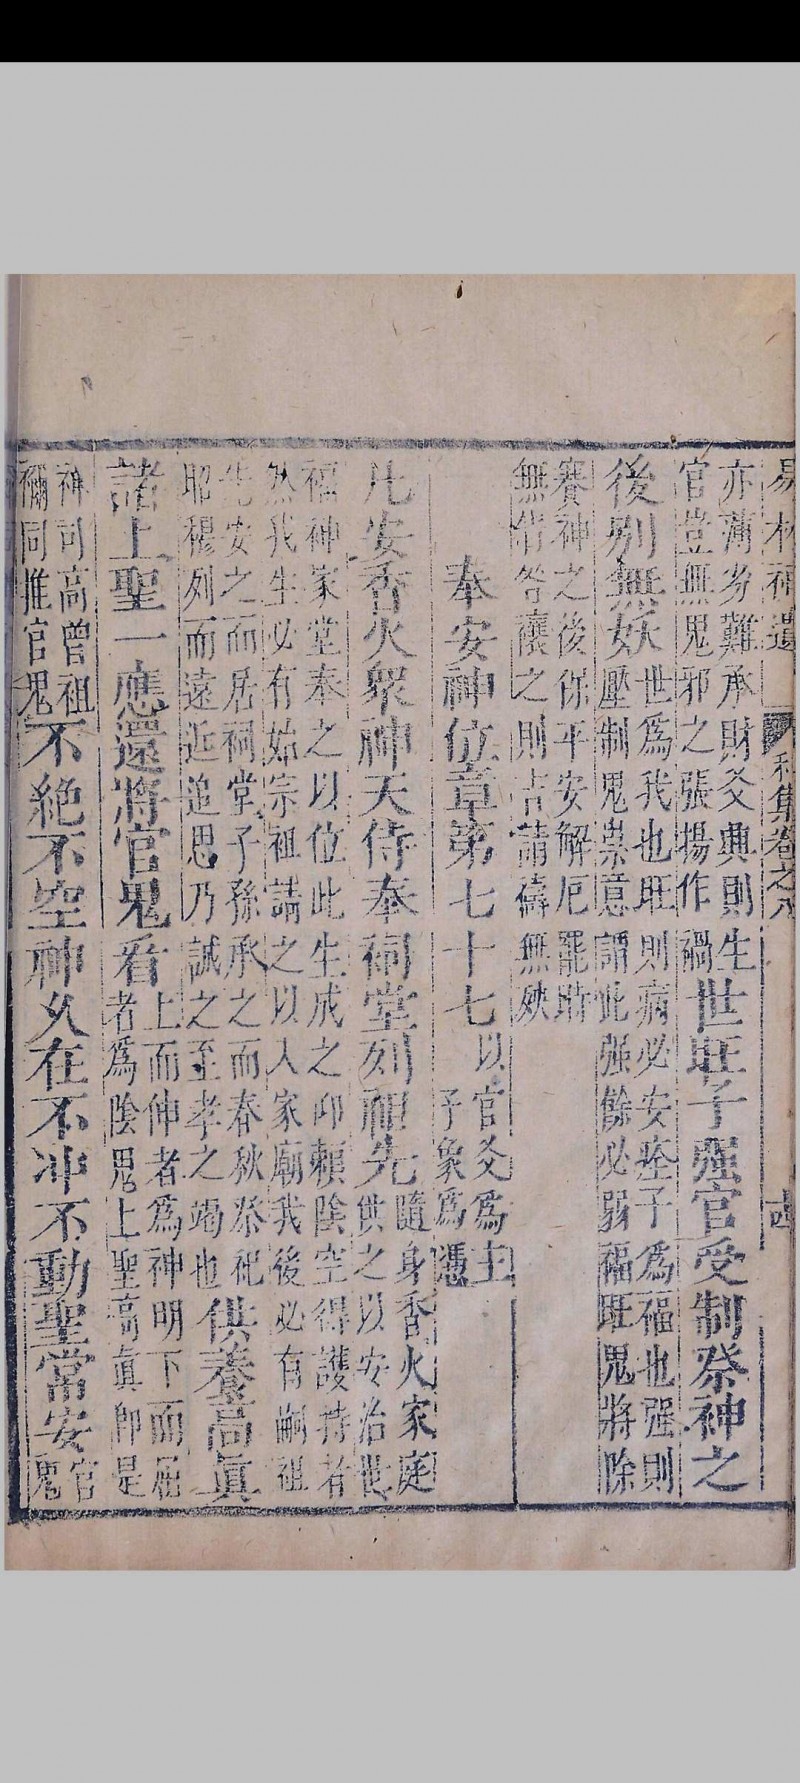 易林補遺 利集卷之八 十四
亦薄劵難承財爻興則生
官豈無鬼邪之張揚作禍
世旺子强官受制祭神之
後别無妖
世爲我也旺則病必安痊子爲福也强則
壓制鬼祟意謂此强餘必弱福旺鬼將除
賽神之後保平安解厄罷時
無俏咎禳之則吉請禱無殃
奉安神位章第七十七
以官爻爲主
子象爲憑
凡安香火衆神天侍奉祠堂列祖先
隨身香火家庭
供之以安治世
福神家堂奉之以位此生成之仰賴陰空得護持者
然我生必有始宗祖請之以入家廟我後必有嗣祖
先安之而居祠堂子孫承之而春秋祭祀
昭穆列而遠近追思乃誠之至孝之竭也
供養高眞
諸上聖一應還將官鬼看
上而伸者爲神明下而屈
者爲陰鬼上聖高眞卽是
神司高曾祖
禰同推官鬼
不絶不空神久在不冲不動聖常安
官
鬼